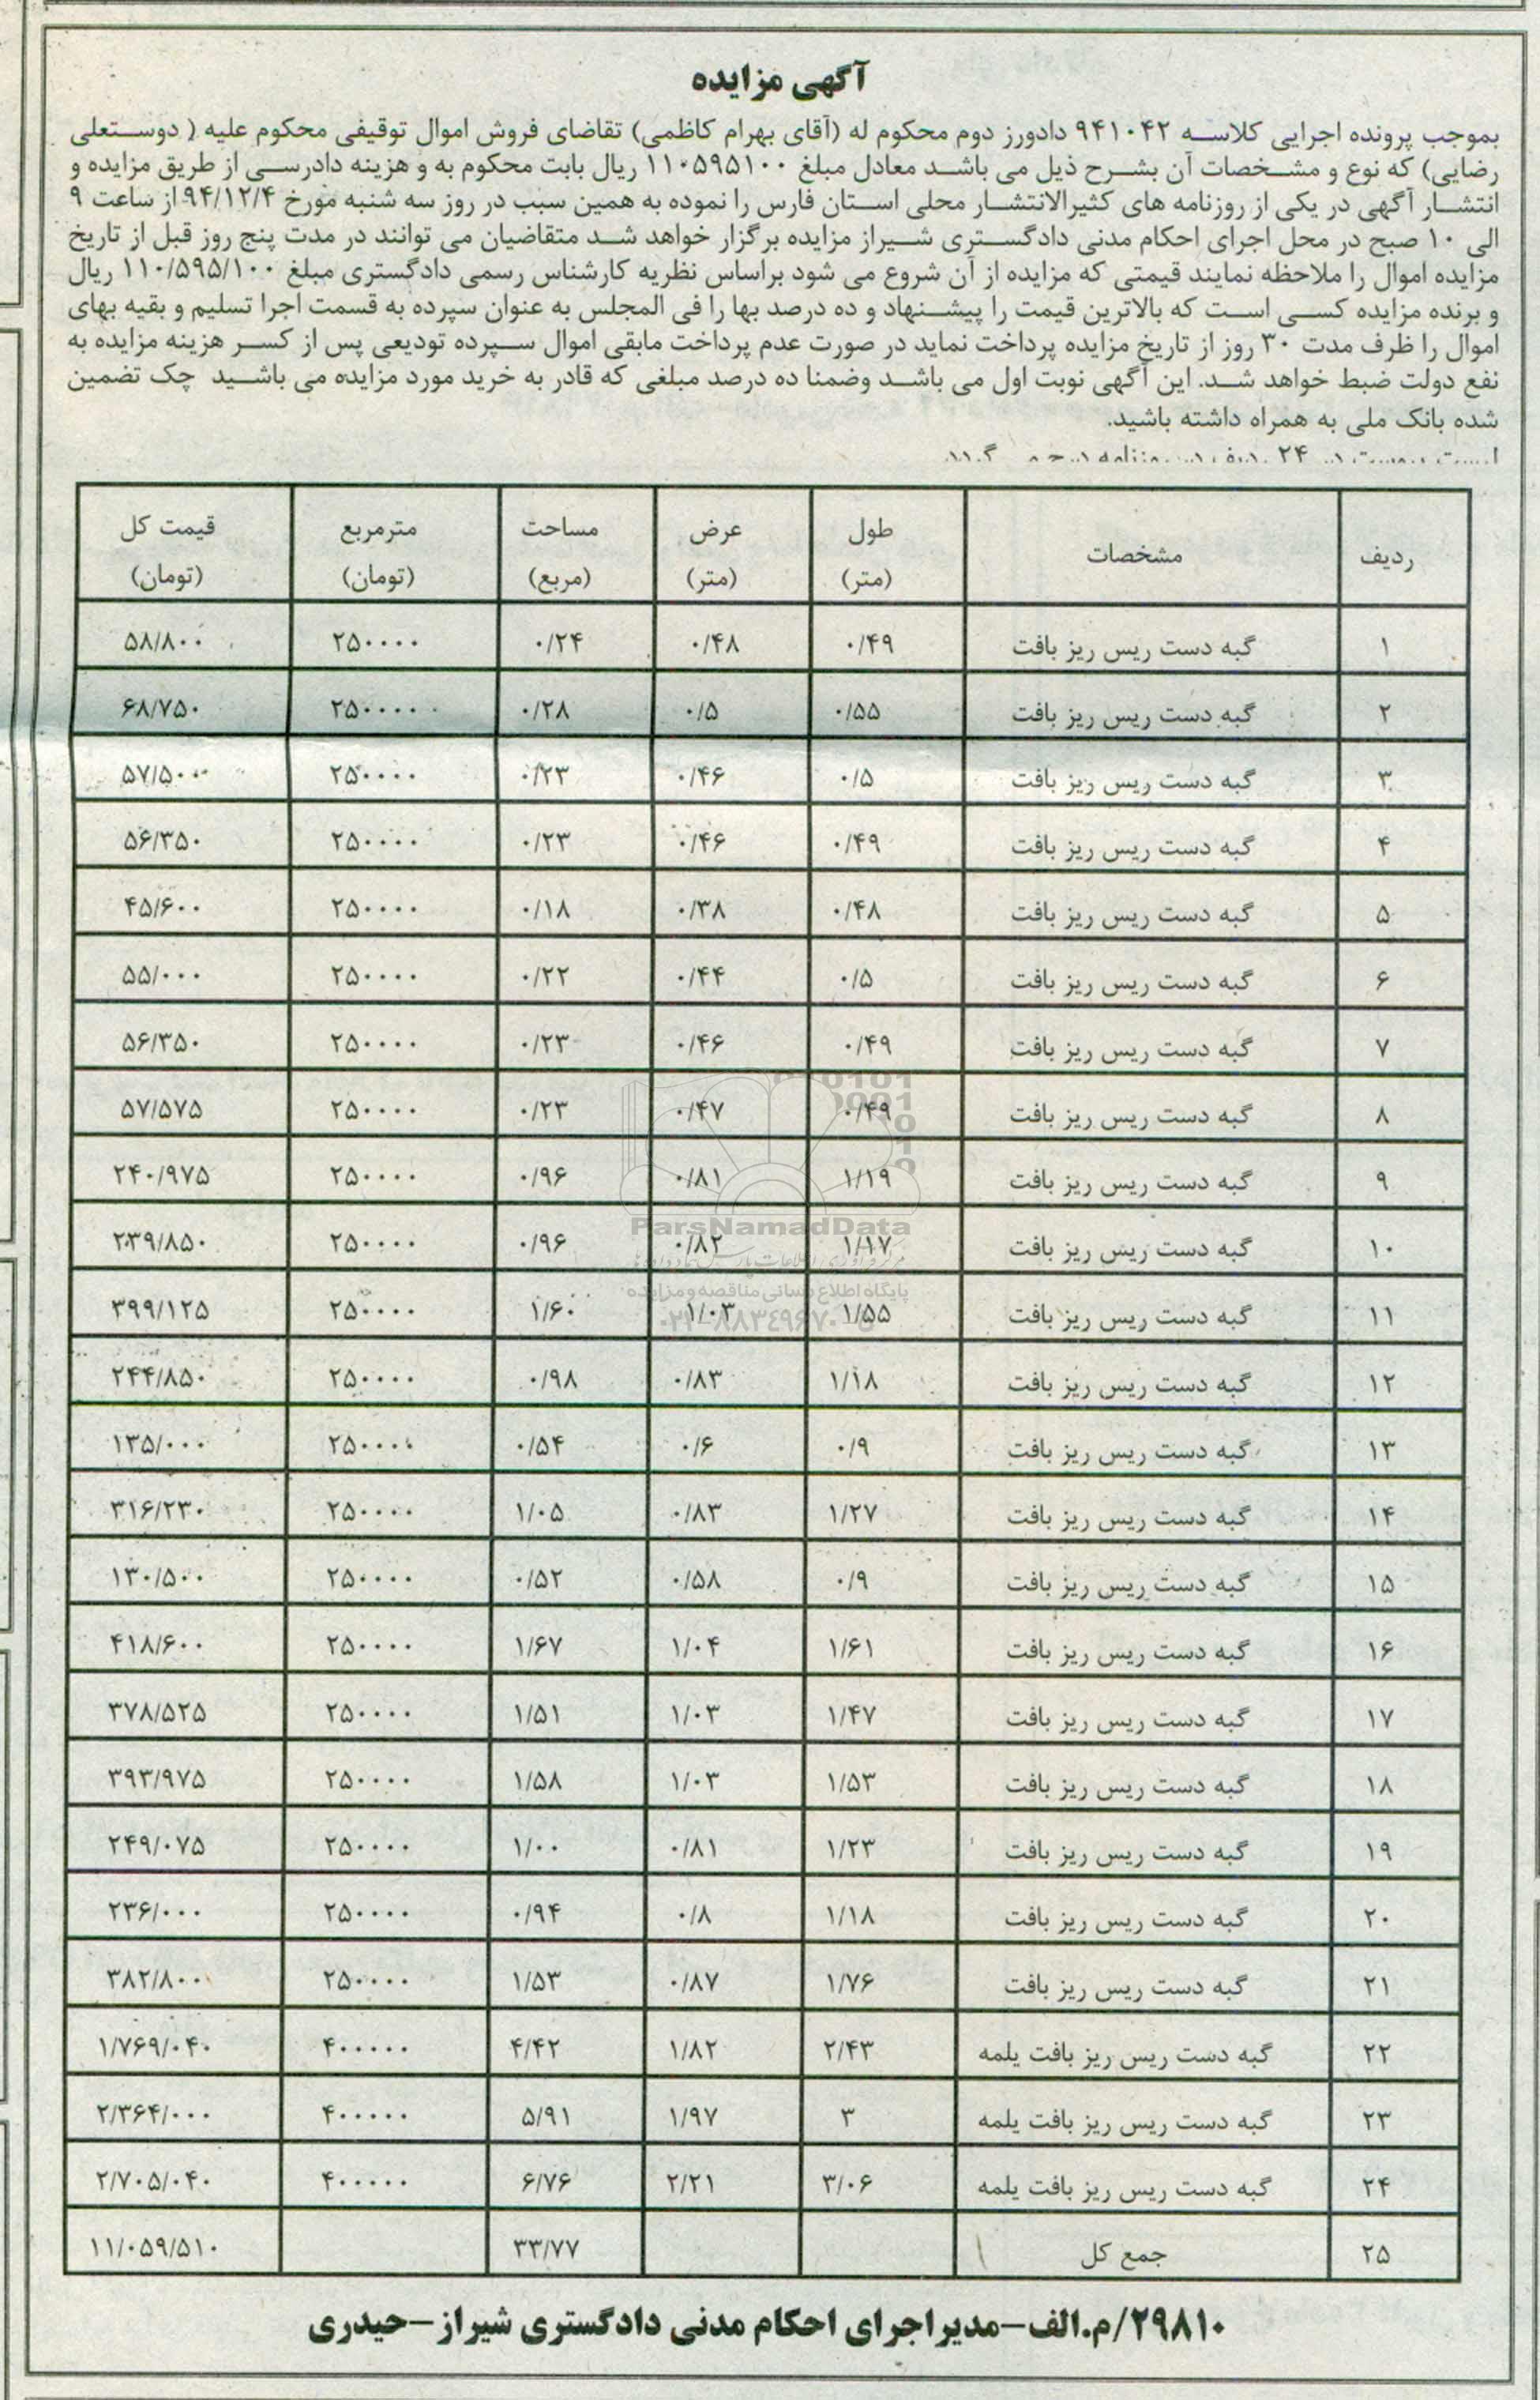 آگهی مزایده
بموجب پرونده اجرایی کلاسه ۹۴۱۰۴۲ دادورز دوم محکوم له (آقای بهرام کاظمی) تقاضای فروش اموال توقیفی محکوم علیه ( دوستعلی
رضایی) که نوع و مشخصات آن بشرح ذیل می باشد معادل مبلغ ۱۱۰۵۹۵۱۰۰ ریال بابت محکوم به و هزینه دادرسی از طریق مزایده و
انتشار آگهی در یکی از روزنامه های کثیرالانتشار محلی استان فارس را نموده به همین سبب در روز سه شنبه مورخ ۹۴/۱۲/۴ از ساعت ۹
الی ۱۰ صبح در محل اجرای احکام مدنی دادگستری شیراز مزایده برگزار خواهد شد متقاضیان می توانند در مدت پنج روز قبل از تاریخ
مزایده اموال را ملاحظه نمایند قیمتی که مزایده از آن شروع می شود براساس نظریه کارشناس رسمی دادگستری مبلغ ۱۱۰/۵۹۵/۱۰۰ ریال
و برنده مزایده کسی است که بالاترین قیمت را پیشنهاد و ده درصد بها را فی المجلس به عنوان سپرده به قسمت اجرا تسلیم و بقیه بهای
اموال را ظرف مدت ۳۰ روز از تاریخ مزایده پرداخت نماید در صورت عدم پرداخت مابقی اموال سپرده تودیعی پس از کسر هزینه مزایده به
نفع دولت ضبط خواهد شد. این آگهی نوبت اول می باشد وضمنا ده درصد مبلغی که قادر به خرید مورد مزایده می باشید چک تضمین
شده بانک ملی به همراه داشته باشید.
لیست پیوست در ۲۴ ردیف در روزنامه درج می گردد.
ردیف مشخصات طول (متر) عرض (متر) مساحت (مربع) مترمربع (تومان) قیمت کل (تومان)
۱ گبه دست ریس ریز بافت ۰/۴۹ ۰/۴۸ ۰/۲۴ ۲۵۰۰۰۰ ۵۸/۸۰۰
۲ گبه دست ریس ریز بافت ۰/۵۵ ۰/۵ ۰/۲۸ ۲۵۰۰۰۰ ۶۸/۷۵۰
۳ گبه دست ریس ریز بافت ۰/۵ ۰/۴۶ ۰/۲۳ ۲۵۰۰۰۰ ۵۷/۵۰۰
۴ گبه دست ریس ریز بافت ۰/۴۹ ۰/۴۶ ۰/۲۳ ۲۵۰۰۰۰ ۵۶/۳۵۰
۵ گبه دست ریس ریز بافت ۰/۴۸ ۰/۳۸ ۰/۱۸ ۲۵۰۰۰۰ ۴۵/۶۰۰
۶ گبه دست ریس ریز بافت ۰/۵ ۰/۴۴ ۰/۲۲ ۲۵۰۰۰۰ ۵۵/۰۰۰
۷ گبه دست ریس ریز بافت ۰/۴۹ ۰/۴۶ ۰/۲۳ ۲۵۰۰۰۰ ۵۶/۳۵۰
۸ گبه دست ریس ریز بافت ۰/۴۹ ۰/۴۷ ۰/۲۳ ۲۵۰۰۰۰ ۵۷/۵۷۵
۹ گبه دست ریس ریز بافت ۱/۱۹ ۰/۸۱ ۰/۹۶ ۲۵۰۰۰۰ ۲۴۰/۹۷۵
ParsNamadData
۱۰ گبه دست ریس ریز بافت ۱/۱۷ ۰/۸۲ ۰/۹۶ ۲۵۰۰۰۰ ۲۳۹/۸۵۰
پایگاه اطلاع رسانی مناقصه و مزایده
۱۱ گبه دست ریس ریز بافت ۱/۵۵ ۱/۰۳ ۱/۶۰ ۲۵۰۰۰۰ ۳۹۹/۱۲۵
۰۲۱-۸۸۳۴۹۶۷۰
۱۲ گبه دست ریس ریز بافت ۱/۱۸ ۰/۸۳ ۰/۹۸ ۲۵۰۰۰۰ ۲۴۴/۸۵۰
۱۳ گبه دست ریس ریز بافت ۰/۹ ۰/۶ ۰/۵۴ ۲۵۰۰۰۰ ۱۳۵/۰۰۰
۱۴ گبه دست ریس ریز بافت ۱/۲۷ ۰/۸۳ ۱/۰۵ ۲۵۰۰۰۰ ۳۱۶/۲۳۰
۱۵ گبه دست ریس ریز بافت ۰/۹ ۰/۵۸ ۰/۵۲ ۲۵۰۰۰۰ ۱۳۰/۵۰۰
۱۶ گبه دست ریس ریز بافت ۱/۶۱ ۱/۰۴ ۱/۶۷ ۲۵۰۰۰۰ ۴۱۸/۶۰۰
۱۷ گبه دست ریس ریز بافت ۱/۴۷ ۱/۰۳ ۱/۵۱ ۲۵۰۰۰۰ ۳۷۸/۵۲۵
۱۸ گبه دست ریس ریز بافت ۱/۵۳ ۱/۰۳ ۱/۵۸ ۲۵۰۰۰۰ ۳۹۳/۹۷۵
۱۹ گبه دست ریس ریز بافت ۱/۲۳ ۰/۸۱ ۱/۰۰ ۲۵۰۰۰۰ ۲۴۹/۰۷۵
۲۰ گبه دست ریس ریز بافت ۱/۱۸ ۰/۸ ۰/۹۴ ۲۵۰۰۰۰ ۲۳۶/۰۰۰
۲۱ گبه دست ریس ریز بافت ۱/۷۶ ۰/۸۷ ۱/۵۳ ۲۵۰۰۰۰ ۳۸۲/۸۰۰
۲۲ گبه دست ریس ریز بافت یلمه ۲/۴۳ ۱/۸۲ ۴/۴۲ ۴۰۰۰۰۰ ۱/۷۶۹/۰۴۰
۲۳ گبه دست ریس ریز بافت یلمه ۳ ۱/۹۷ ۵/۹۱ ۴۰۰۰۰۰ ۲/۳۶۴/۰۰۰
۲۴ گبه دست ریس ریز بافت یلمه ۳/۰۶ ۲/۲۱ ۶/۷۶ ۴۰۰۰۰۰ ۲/۷۰۵/۰۴۰
۲۵ جمع کل ۳۳/۷۷ ۱۱/۰۵۹/۵۱۰
۲۹۸۱۰/م.الف-مدیر اجرای احکام مدنی دادگستری شیراز-حیدری